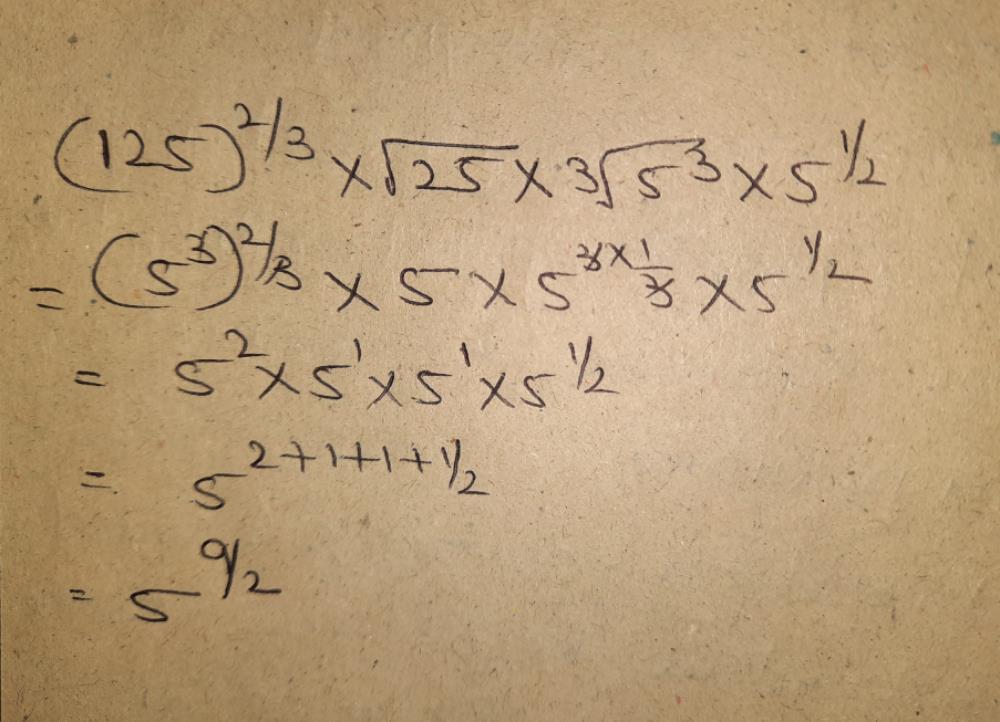 (125)^2/3 × √25 × 3√5^3 × 5^1/2
= (5^3)^2/3 × 5 × 5^3×1/3 × 5^1/2
= 5^2 × 5^1 × 5^1 × 5^1/2
= 5^2+1+1+1/2
= 5^9/2